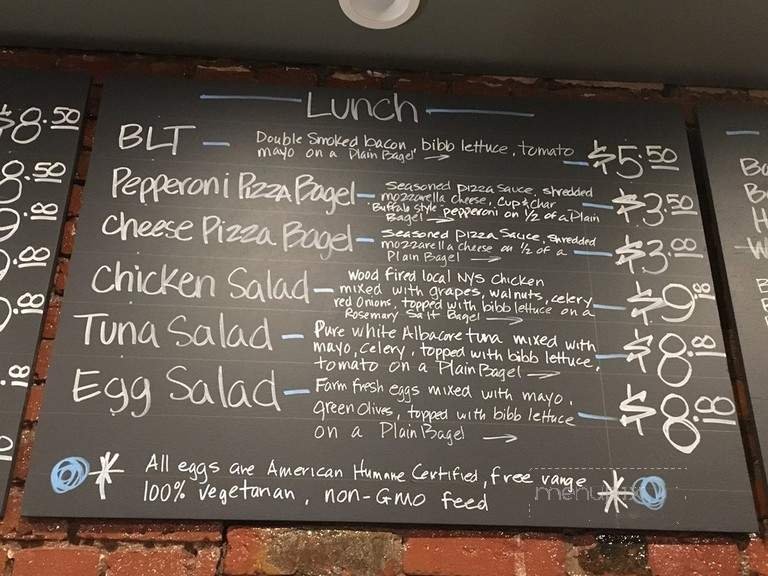 Lunch
BLT — Double Smoked bacon, bibb lettuce, tomato
mayo on a Plain Bagel → — $5.50
Pepperoni Pizza Bagel — Seasoned pizza sauce, shredded
mozzarella cheese, Cup & Char
Buffalo Style pepperoni on 1/2 of a Plain
Bagel → — $3.50
Cheese Pizza Bagel — Seasoned pizza sauce, shredded
mozzarella cheese on 1/2 of a
Plain Bagel → — $3.00
Chicken Salad — Wood fired local NYS chicken
mixed with grapes, walnuts, celery,
red onions, topped with bibb lettuce on a
Rosemary Salt Bagel → — $9.00
Tuna Salad — Pure white Albacore tuna mixed with
mayo, celery, topped with bibb lettuce,
tomato on a Plain Bagel → — $8.00
Egg Salad — Farm fresh eggs mixed with mayo,
green olives, topped with bibb lettuce
on a Plain Bagel → — $8.00
* All eggs are American Humane Certified, free range *
100% vegetarian, non-GMO feed
$8.50
8.50